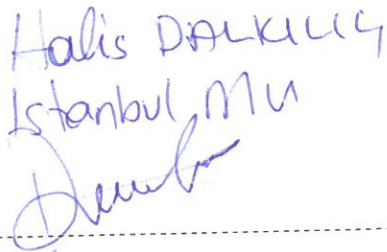 Halis DALKILIÇ
İstanbul Mv